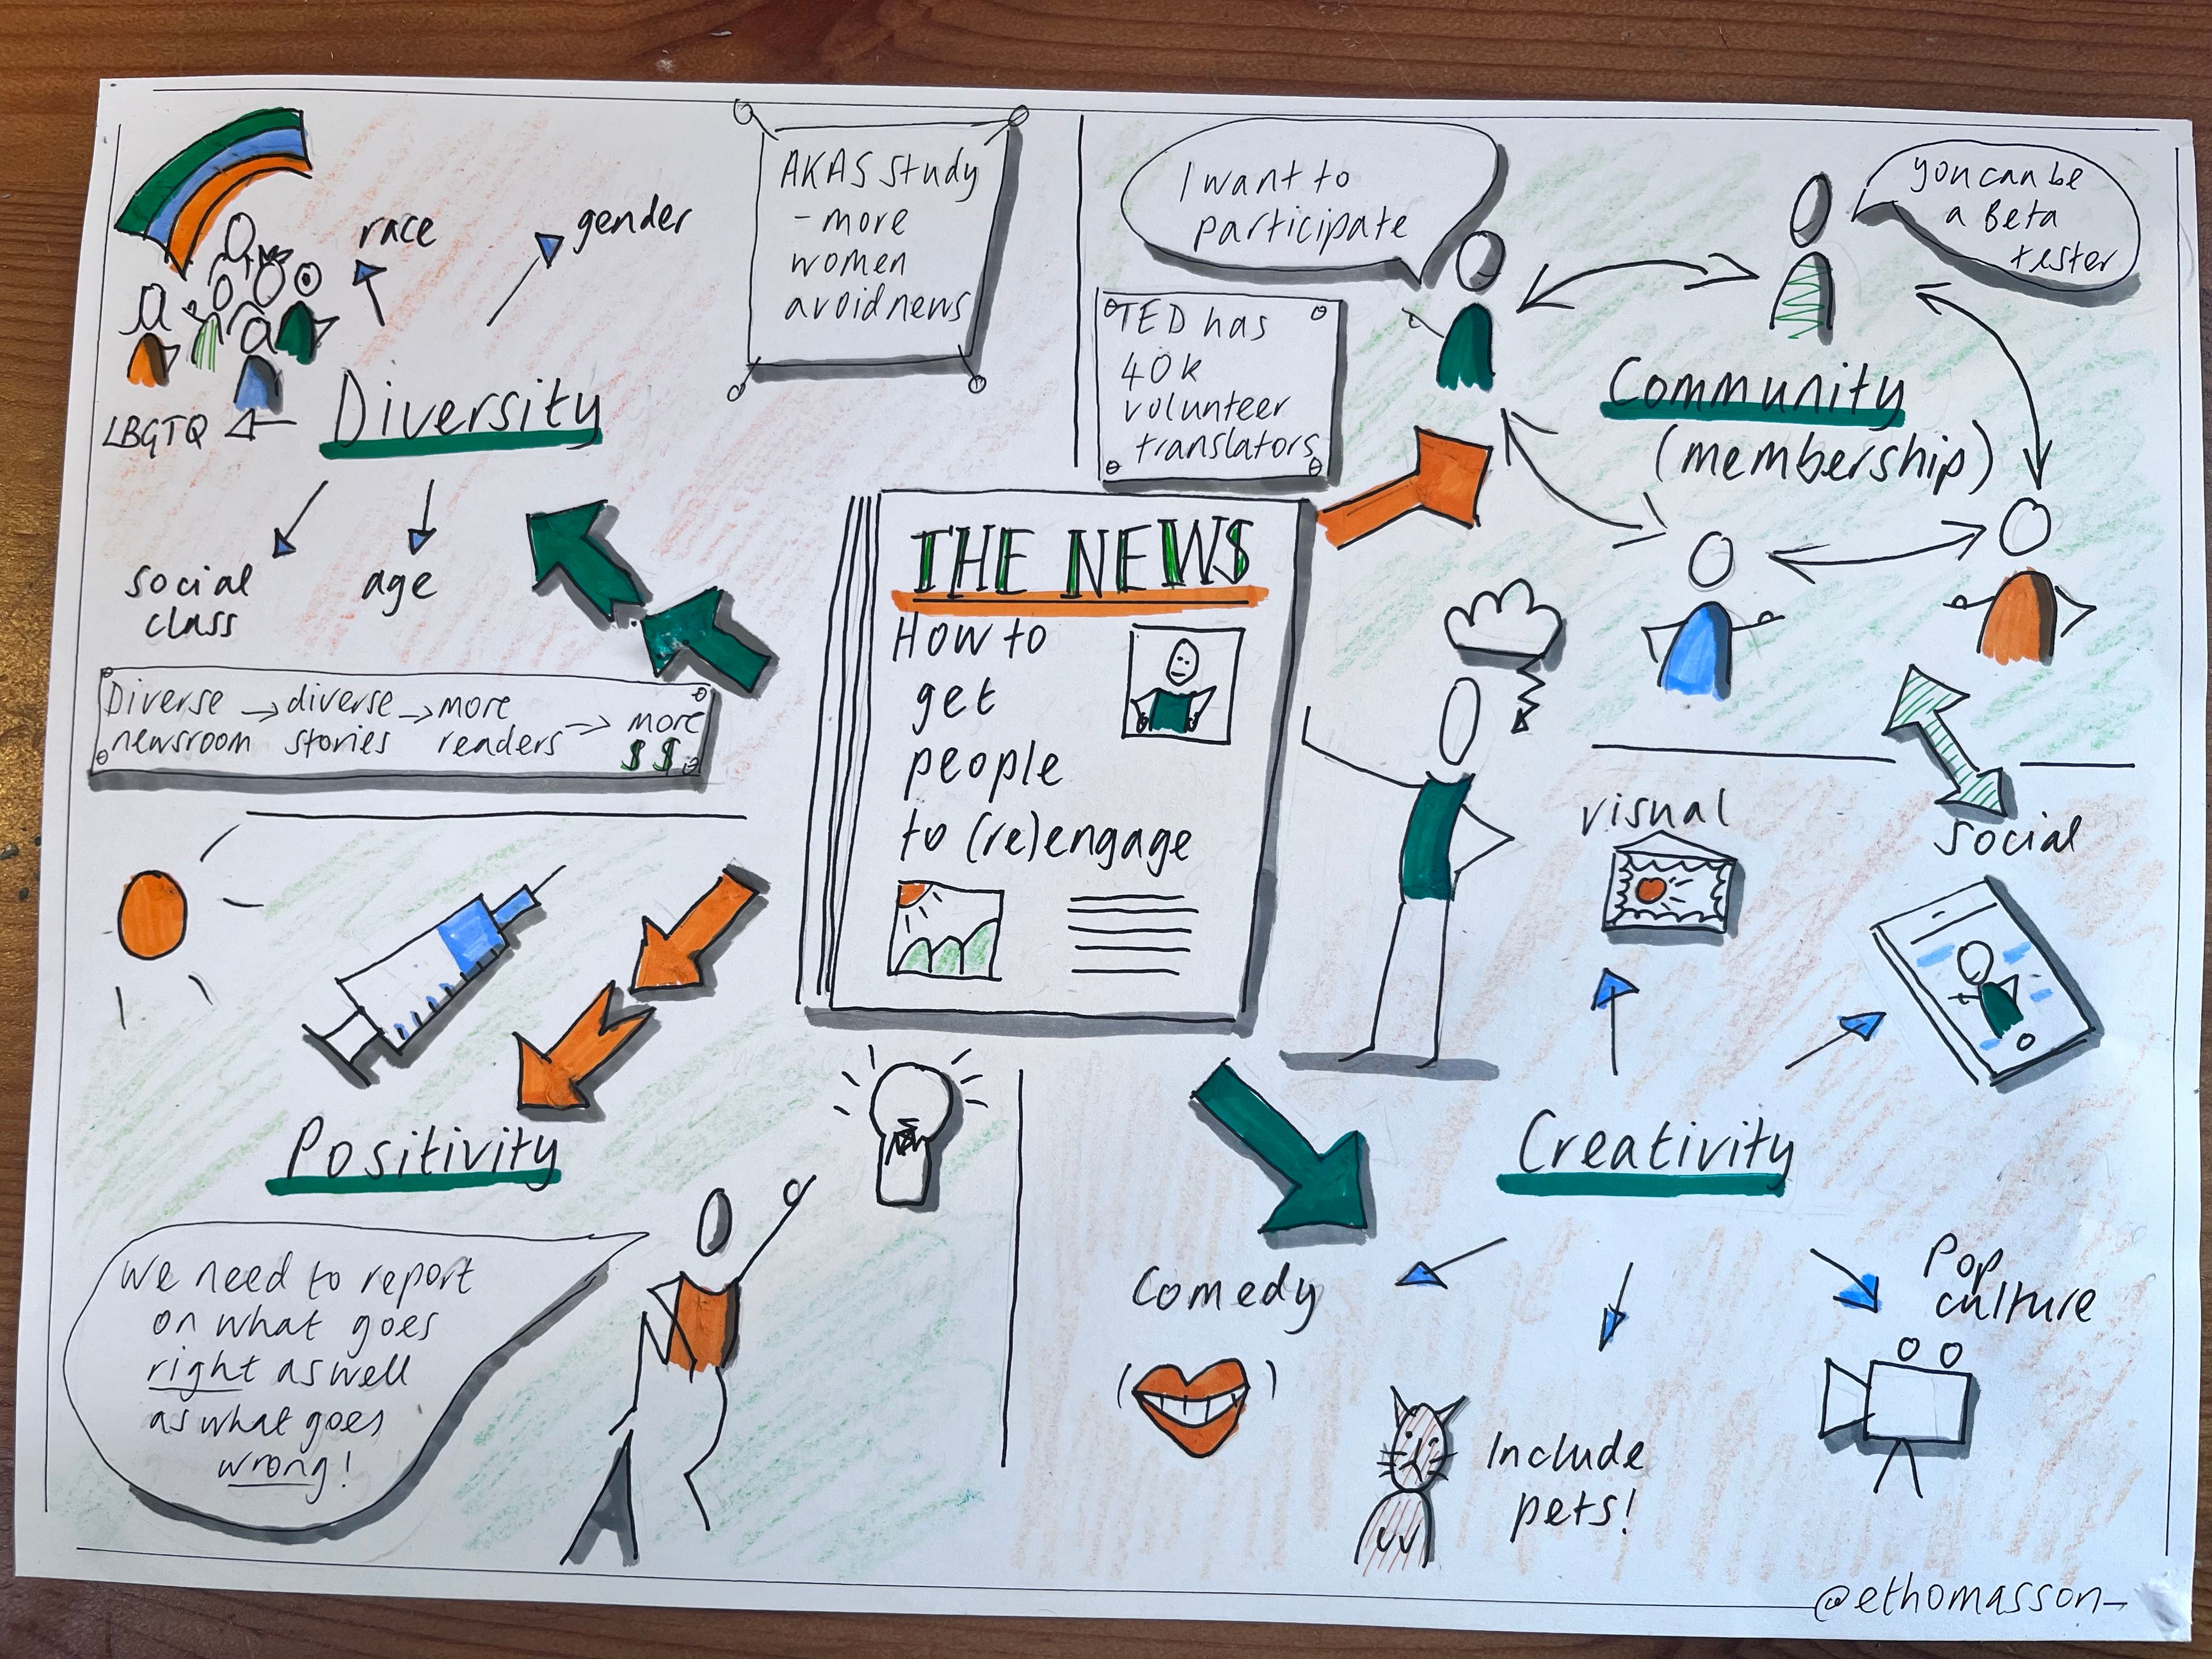 race
gender
Diversity
LBGTQ
social
class
age
AKAS study
- more
women
avoid news
Diverse → diverse → more → more
newsroom stories readers $ $
I want to
participate
you can be
a Beta
tester
TED has
40k
volunteer
translators
Community
(membership)
THE NEWS
How to
get
people
to (re)engage
Positivity
We need to report
on what goes
right as well
as what goes
wrong!
visual
social
Creativity
Comedy
Include
pets!
Pop
culture
@ethomasson_